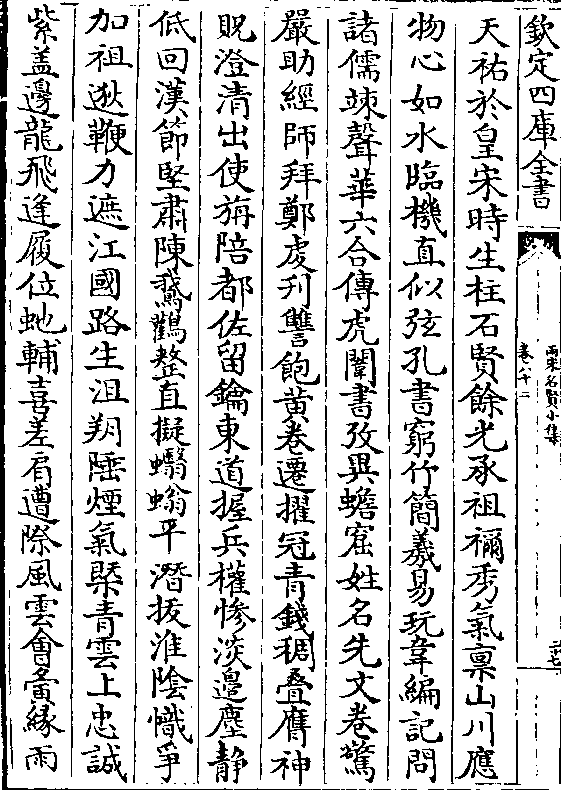 欽定四庫全書
兩宋名賢小集
卷八十二
二十七
天祐於皇宋時生柱石賢餘光承祖禰秀氣禀山川應
物心如水臨機直似弦孔書窮竹簡羲易玩韋編記問
諸儒竦聲華六合傳虎闈書攷異蟾窟姓名先文卷驚
嚴助經師拜鄭䖍刊讐飽黄卷遷擢冠青錢稠疊膺神
貺澄清出使旃陪都佐留鑰東道握兵權慘淡邉塵静
低回漢節堅肅陳鵞鸛整直擬蠮螉平潛拔淮陰幟爭
加祖逖鞭力遮江國路生沮朔陲煙氣槩青雲上忠誠
紫盖邊龍飛逢履位虵輔喜差肩遭際風雲會夤緣雨